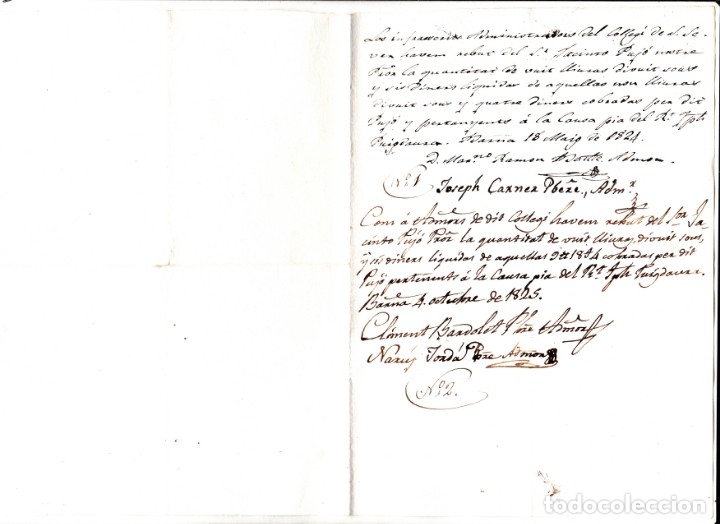 Los infrascrits Administradors del Collegi de S. Se-
ver havem rebut del Sr. Jacinto Pujó nostre
Pror la quantitat de vuit lliuras divuit sous
y sis diners liquidas de aquellas nou lliuras
divuit sous y quatre diners cobradas per dit
Pujó y pertanyents á la Causa pia del Rt. Jph.
Puigdaura. Barna 18 Maig de 1824.
D. Marno Ramon Admor.
No. 1 Joseph Carner Pbere., Admr.
Com á Admors de dit Collegi havem rebut del Sor Ja-
cinto Pujó Pror la quantitat de vuit lliuras, divuit sous,
y sis diners liquidas de aquellas 9 18 4 cobradas per dit
Pujó pertenents á la Causa pia del Rt. Jph Puigdaura.
Barna 4 octubre de 1825.
Climent Bardolet Pbre Admor
Narcis Jordá Pbre Admor
No. 2.
todocoleccion